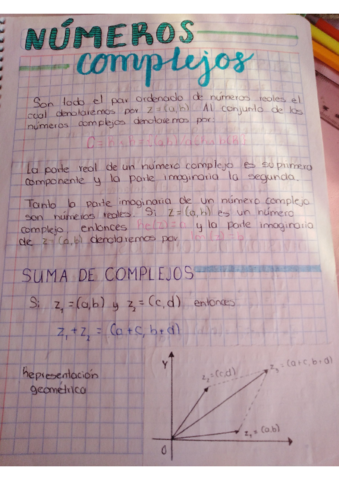 NÚMEROS
complejos
Son todo el par ordenado de números reales el
cual denotaremos por z=(a,b). Al conjunto de los
números complejos denotaremos por:
La parte real de un número complejo es su primera
componente y la parte imaginaria la segunda.
Tanto la parte imaginaria de un número complejo
son números reales. Si z=(a,b) es un número
complejo, entonces y la parte imaginaria
de z=(a,b) denotaremos por
SUMA DE COMPLEJOS
Si z₁=(a,b) y z₂=(c,d), entonces
z₁+z₂ = (a+c, b+d)
Representación
geométrica
Y
z₂=(c,d)
z₃=(a+c, b+d)
z₁=(a,b)
0